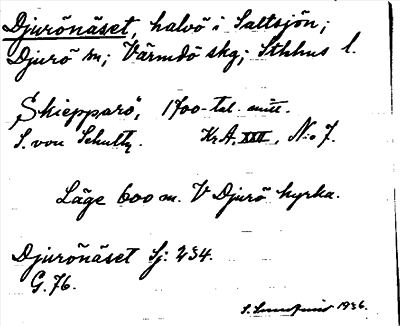 Djurönäset, halvö i Saltsjön;
Djurö sn; Värmdö skg; Sthlms l.
Skiepparö, 1700-tal. mitt.
S. von Schultz. Kr.A. XXII, No 7.
Läge 600 m. V Djurö kyrka.
Djurönäset Sj: 234.
G. 76.
S. 1936.